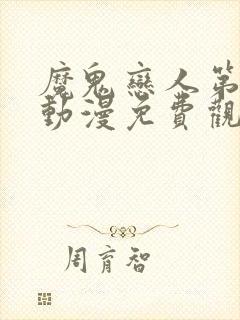 魔鬼戀人第
動漫免費觀
周育智